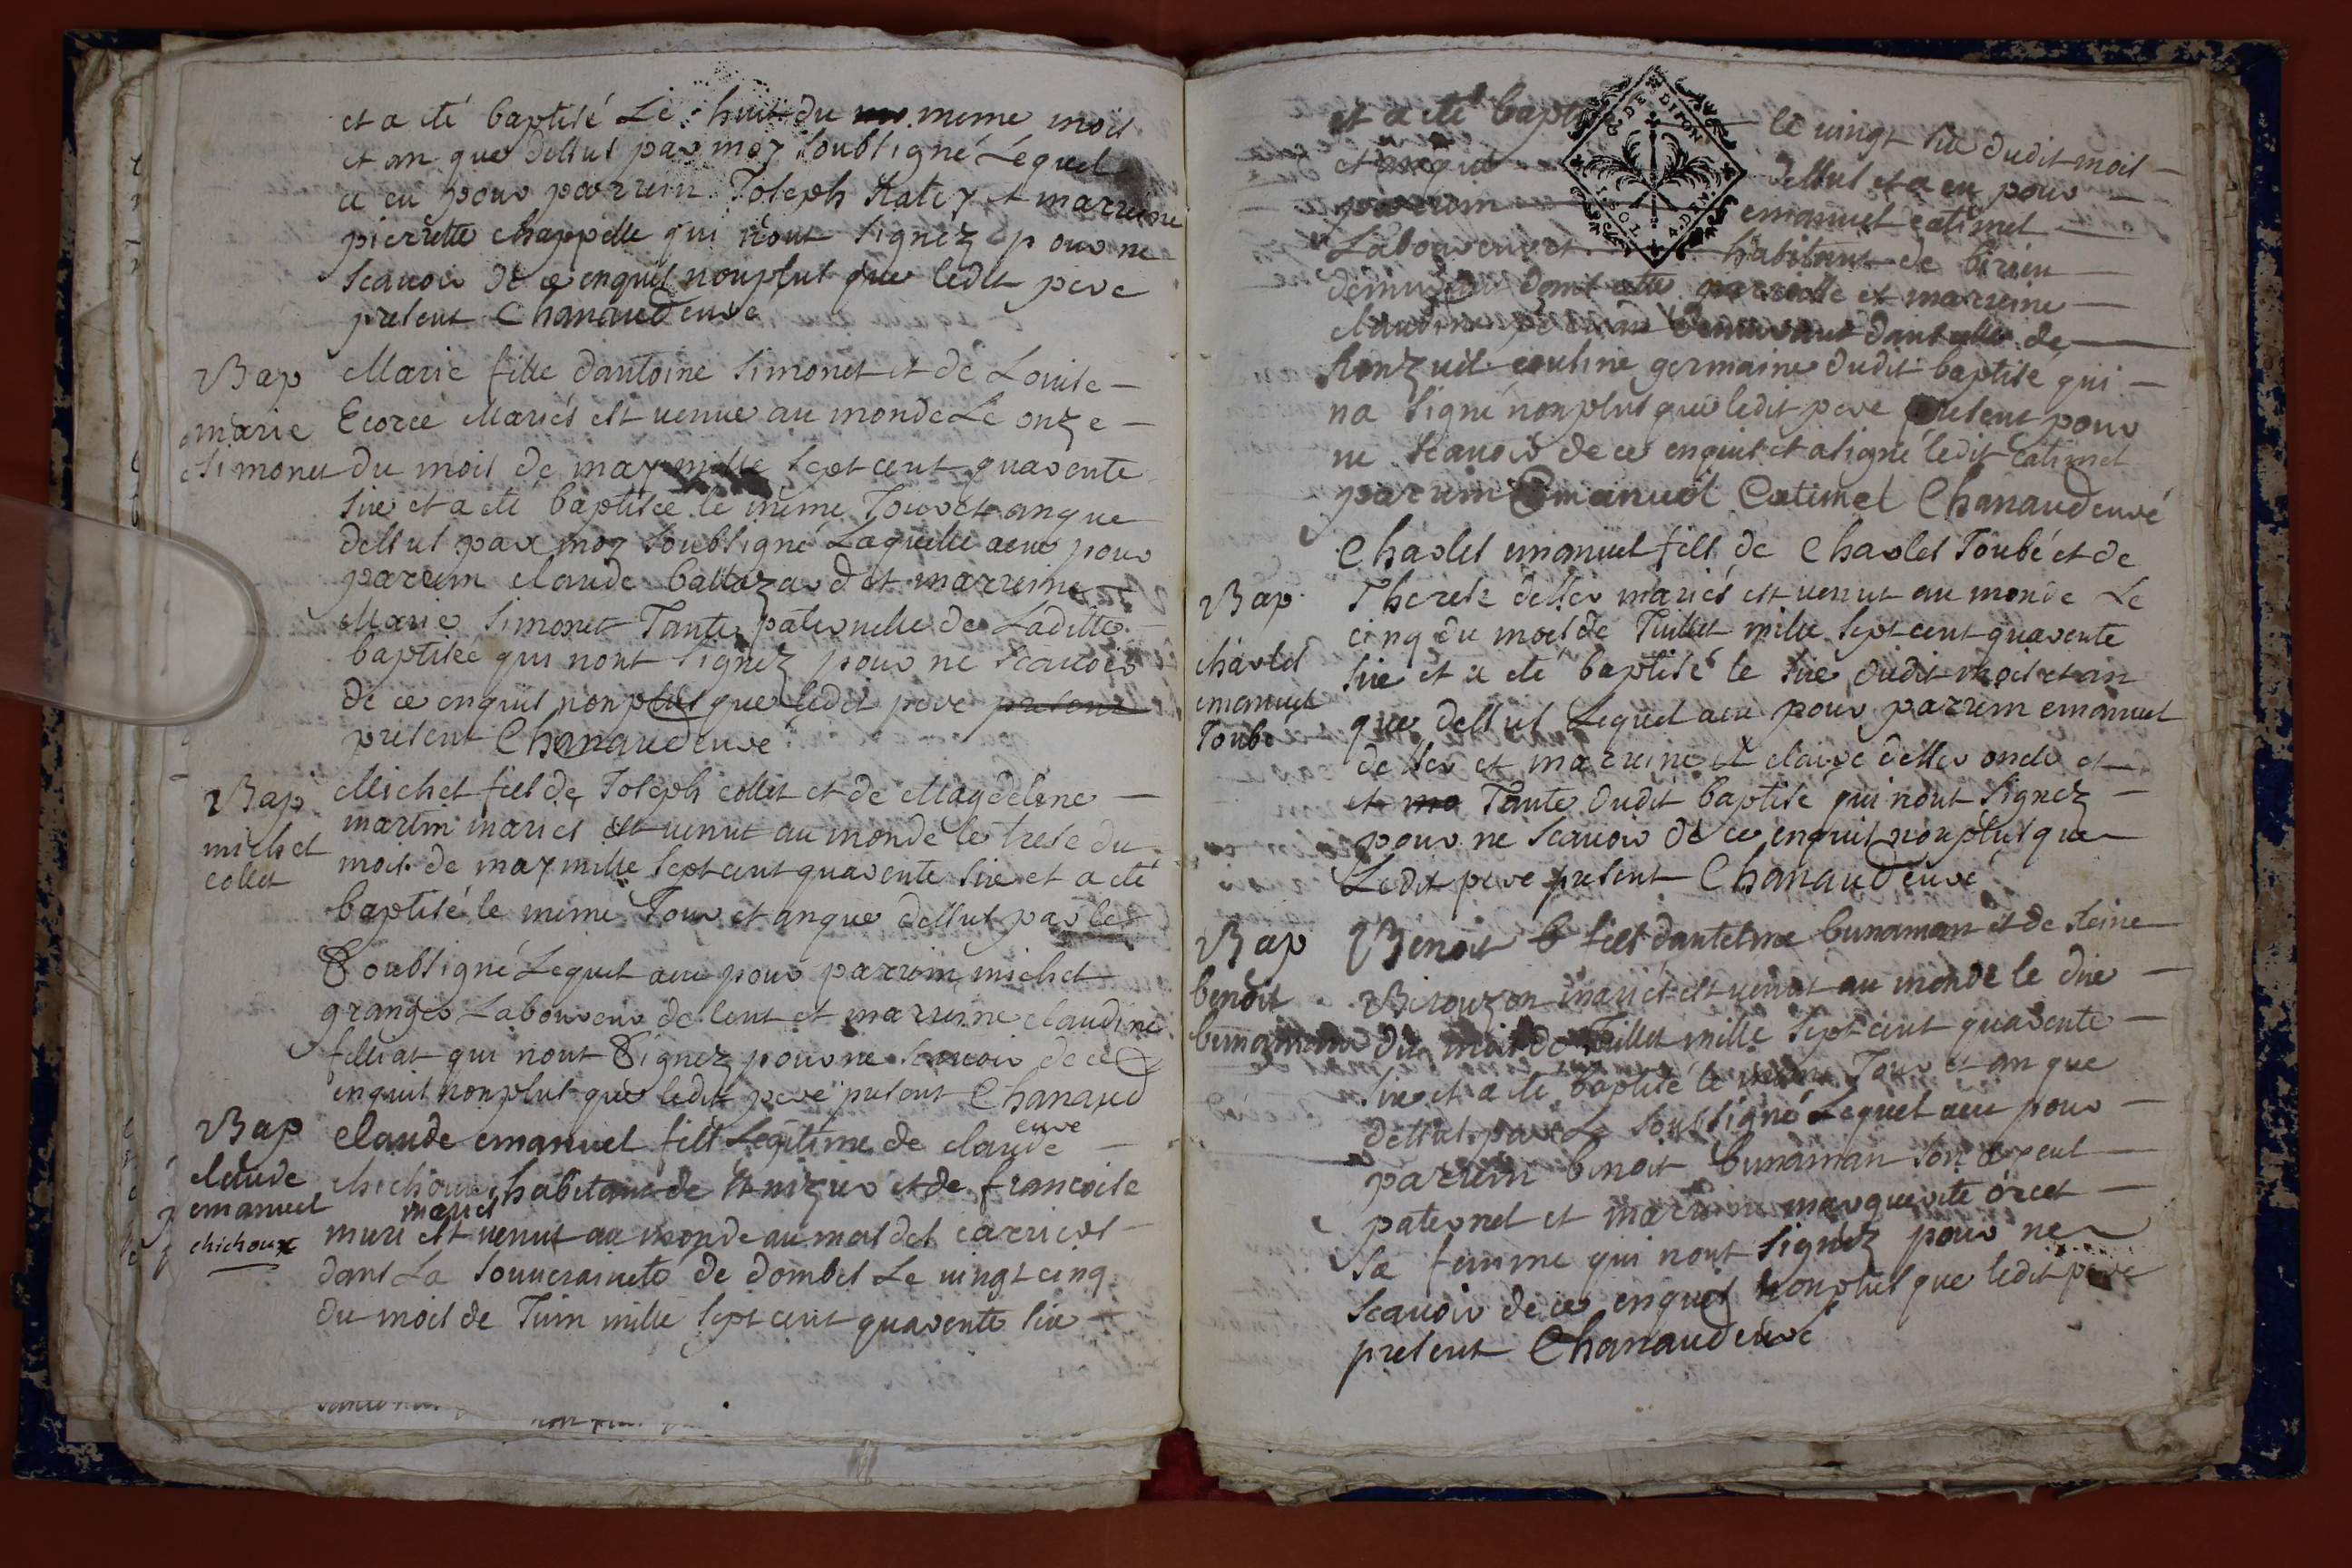 et a eté baptisé Le huit du meme mois
et an que dessus par moy soubsigné Lequel
a eu pour parrein Joseph Ratey et marreine
pierrette chappelle qui nont signez pour ne
scauoir de ce enquis nonplus que ledit pere
present Chanaud curé
Bap
marie
simonet
Marie fille dantoine simonet et de Louise
Ecorcé Mariés est venue au monde Le onze
du mois de may mille sept cent quarente
six et a eté baptisée le meme Jour et an que
dessus par moy soubsigné Laquelle a eu pour
parrein claude baltazard et marreine
Marie simonet Tante paternelle de Laditte
baptisée qui nont signez pour ne scauoir
de ce enquis nonplus que ledit pere present
present Chanaud curé
Bap
michel
collet
Michel fils de Joseph collet et de Magdeleine
marin mariés est venut au monde le trese du
mois de may mille sept cent quarente six et a eté
baptisé le meme Jour et an que dessus par le
Soubsigné Lequel a eu pour parrein michel
granger Laboureur de lent et marreine claudine
filliat qui nont Signez pour ne scauoir de ce
enquis nonplus que ledit pere present Chanaud
curé
Bap
claude
emanuel
chichoux
claude emanuel fils Legitime de claude
chichoux habitant de et de francoise
mariés
muri est venut au monde au mas des carriers
dans La souueraineté de dombes Le vingt cinq
du mois de Juin mille sept cent quarente six
et a eté baptisé le vingt six dudit mois
et an que dessus et a eu pour
parrein emanuel catimel
Laboureur et habitant de birieu
demeurant dans cette parroisse et marreine
claudine demeurant dans celle de
Ronzuel cousine germaine dudit baptisé qui
na signé nonplus que ledit pere present pour
ne scauoir de ce enquis et a signé ledit Catimel
parrein Emanuel Catimel Chanaud curé
Bap
charles
emanuel
Joubé
Charles emanuel fils de Charles Joubé et de
Therese deller mariés est venut au monde Le
cinq du mois de Juillet mille sept cent quarente
six et a eté baptisé le six dudit mois et an
que dessus Lequel a eu pour parrein emanuel
deller et marreine claire deller oncle et
et Tante dudit baptisé qui nont signez
pour ne scauoir de ce enquis nonplus que
Ledit pere present Chanaud curé
Bap
benoit
bunaman
Benoit b fils dantelme bunaman et de Reine
Birouzon mariés est venut au monde le dix
du mois de Juillet mille sept cent quarente
six et a eté baptisé le meme Jour et an que
dessus par Le soussigné Lequel a eu pour
parrein benoit bunaman son ayeul
paternel et marreine marguerite orcet
sa femme qui nont signez pour ne
scauoir de ce enquis nonplus que ledit pere
present Chanaud curé